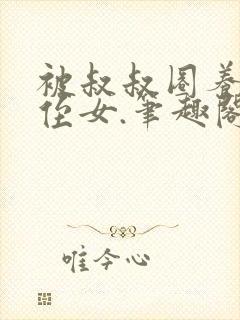 被叔叔圈养
侄女.笔趣阁
唯今心